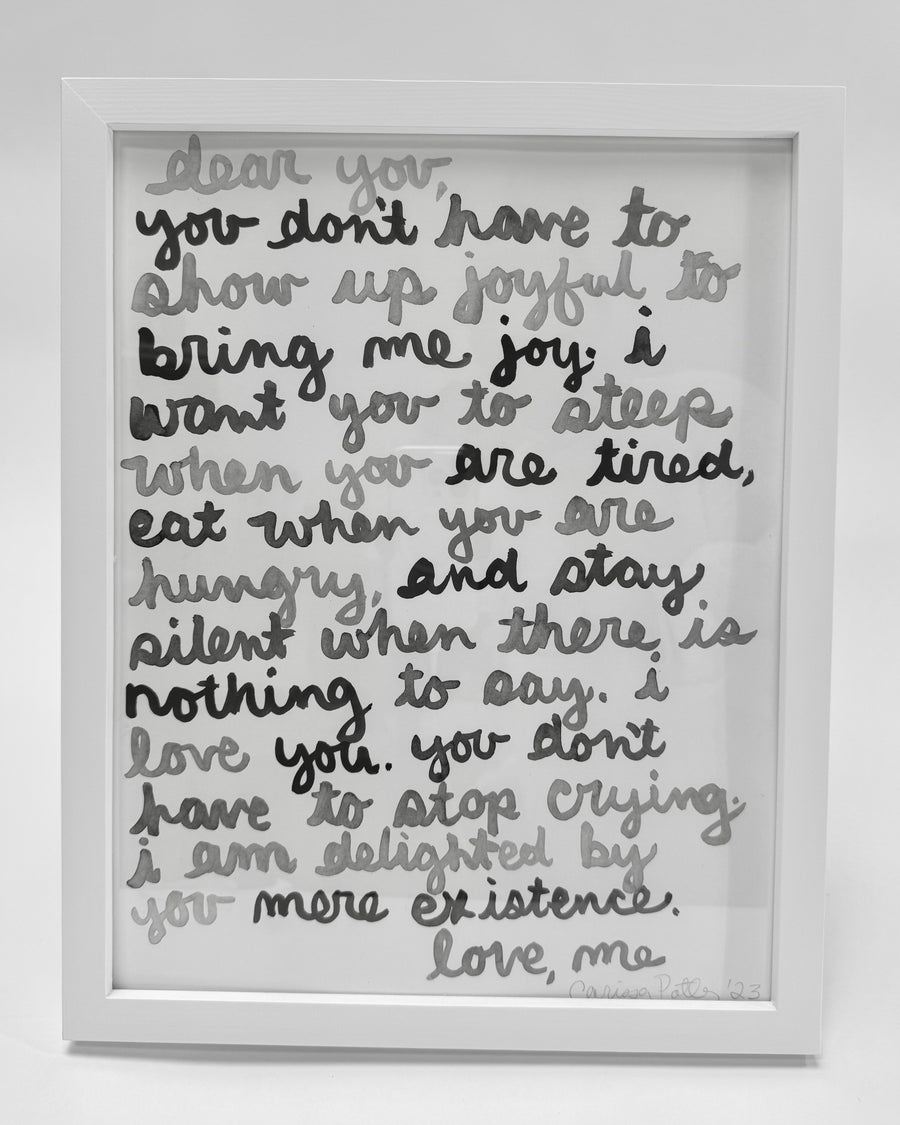 dear you,
you don't have to
show up joyful to
bring me joy. i
want you to steep
when you are tired,
eat when you are
hungry, and stay
silent when there is
nothing to say. i
love you. you don't
have to stop crying.
i am delighted by
you mere existence.
love, me
Carissa Potter '23